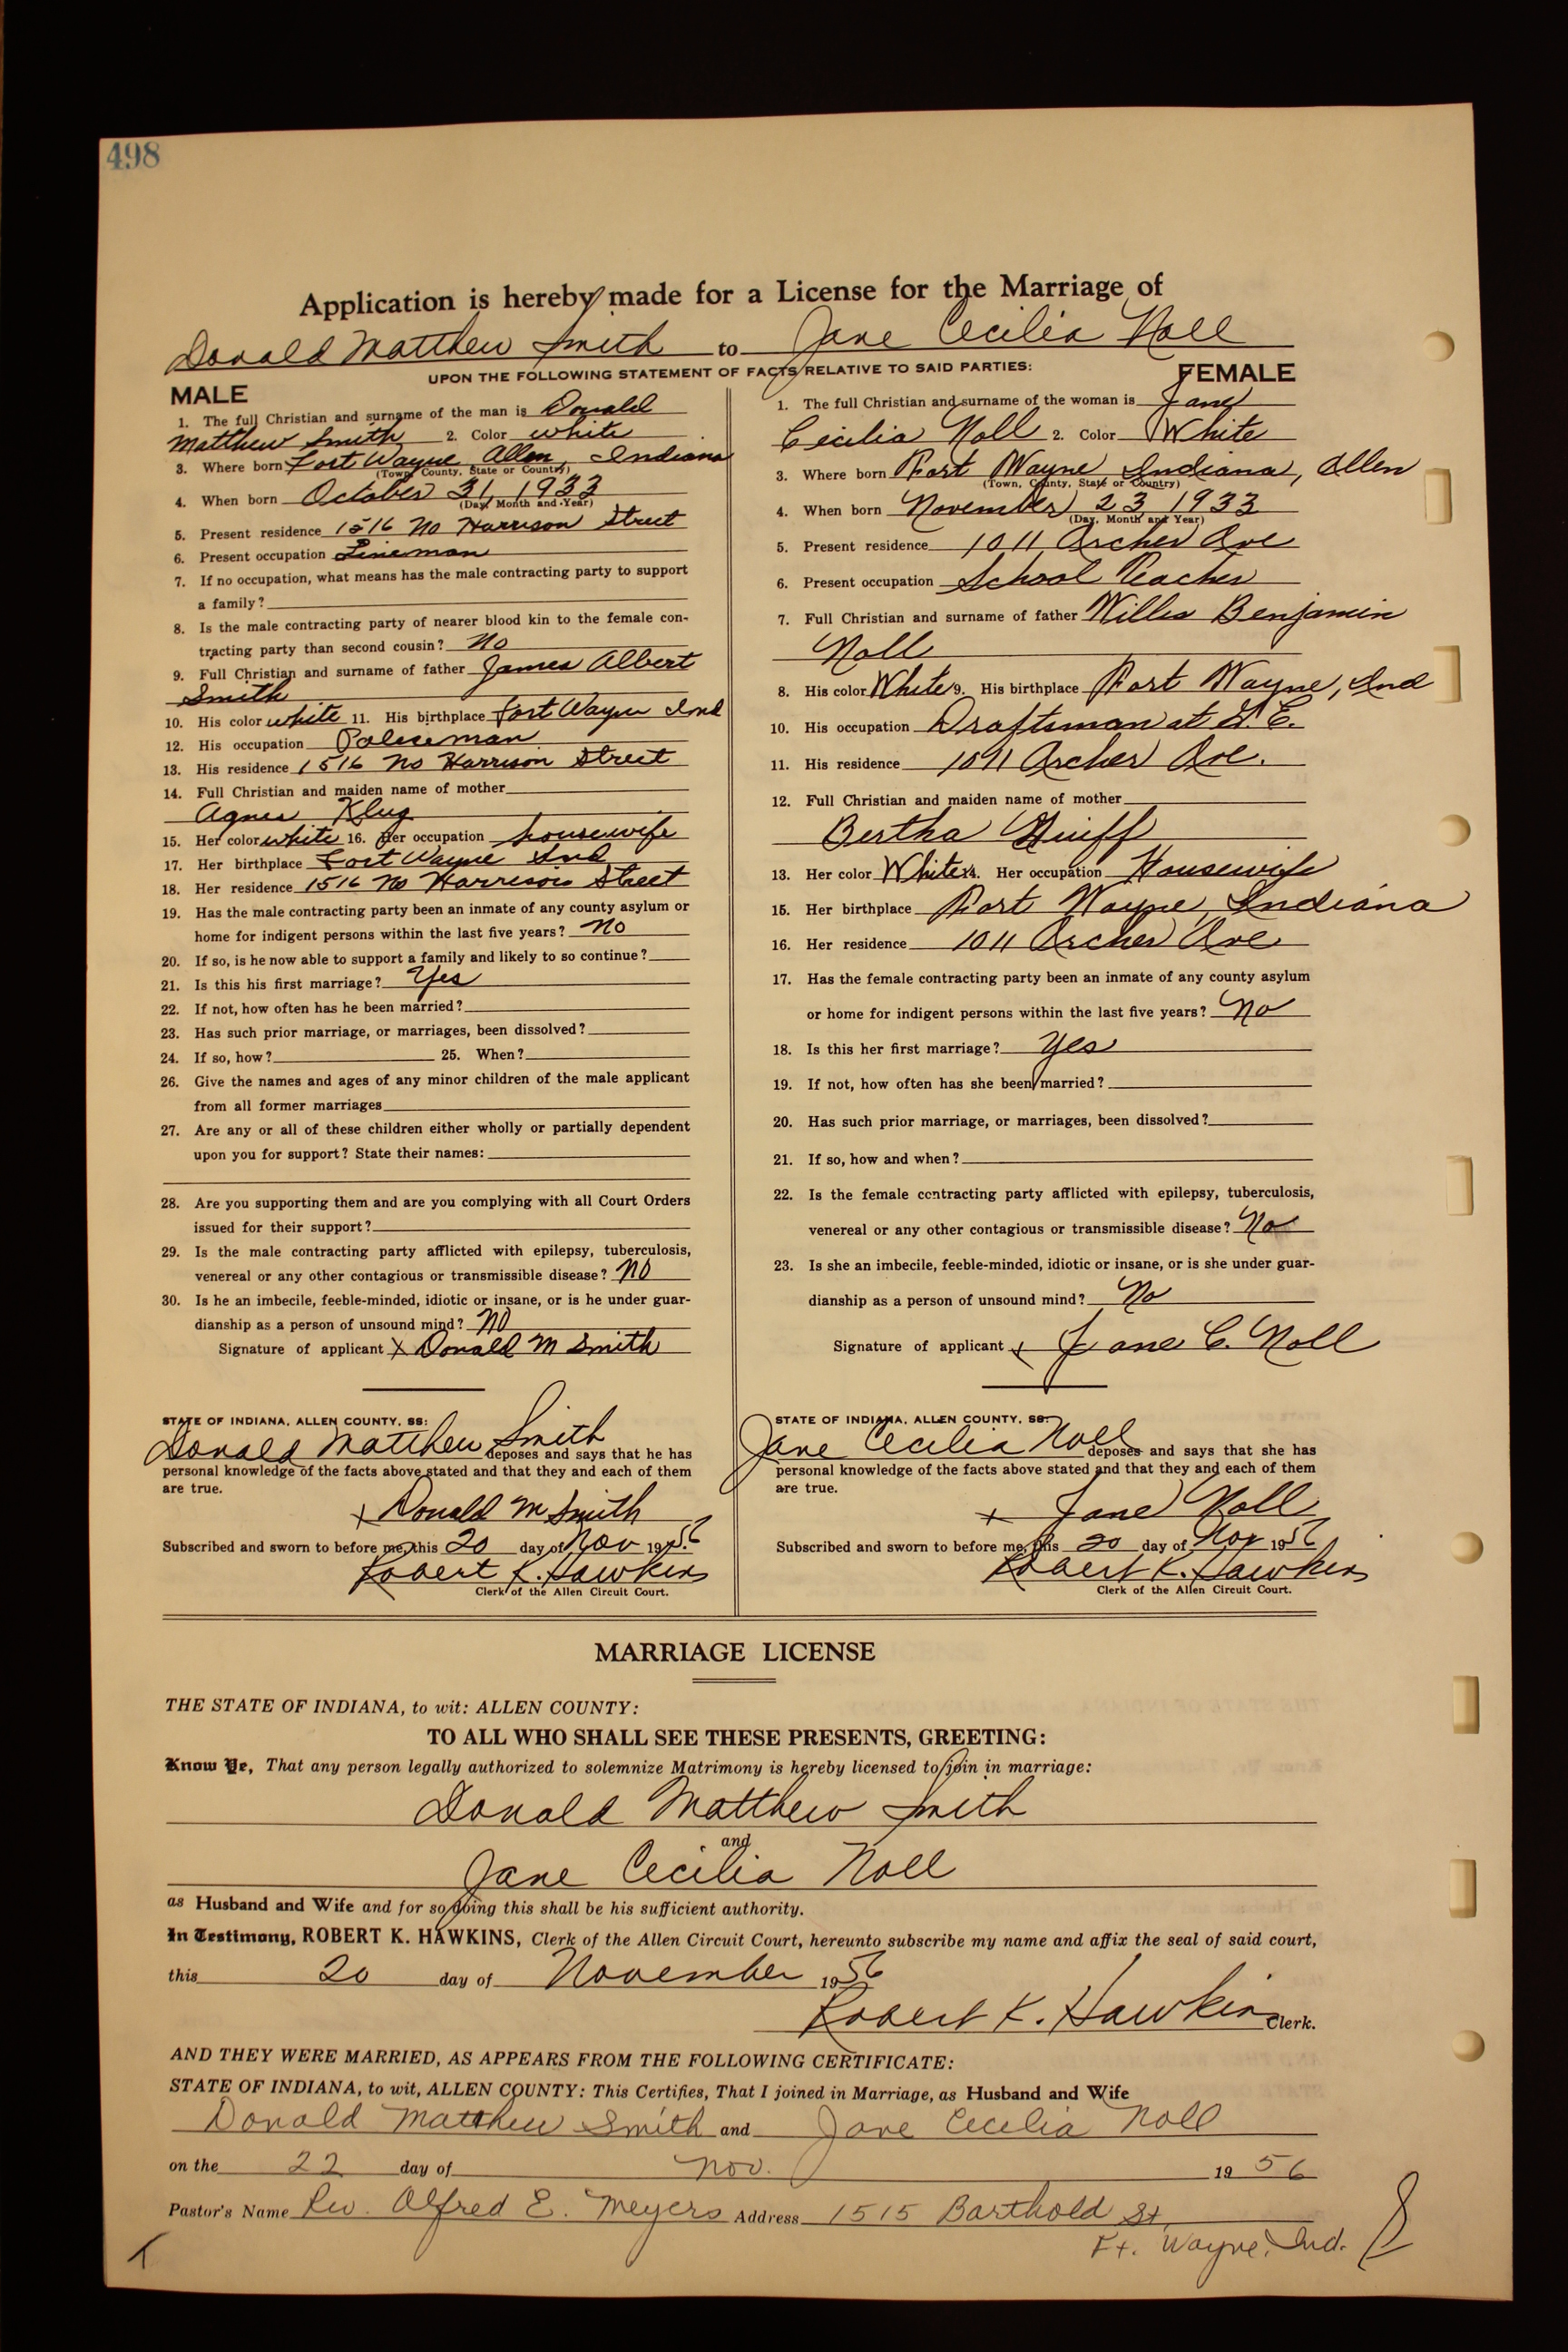 498
Application is hereby made for a License for the Marriage of
Donald Matthew Smith to Jane Cecilia Noll
UPON THE FOLLOWING STATEMENT OF FACTS RELATIVE TO SAID PARTIES:
MALE
1. The full Christian and surname of the man is Donald
Matthew Smith 2. Color white
3. Where born Fort Wayne Allen, Indiana
(Town, County, State or Country)
4. When born October 31 1933
(Day, Month and Year)
5. Present residence 1516 No Harrison Street
6. Present occupation Lineman
7. If no occupation, what means has the male contracting party to support
a family?
8. Is the male contracting party of nearer blood kin to the female con-
tracting party than second cousin? No
9. Full Christian and surname of father James Albert
Smith
10. His color white 11. His birthplace Fort Wayne Ind
12. His occupation Policeman
13. His residence 1516 No Harrison Street
14. Full Christian and maiden name of mother
Agnes Klug
15. Her color white 16. Her occupation housewife
17. Her birthplace Fort Wayne Ind
18. Her residence 1516 No Harrison Street
19. Has the male contracting party been an inmate of any county asylum or
home for indigent persons within the last five years? No
20. If so, is he now able to support a family and likely to so continue?
21. Is this his first marriage? Yes
22. If not, how often has he been married?
23. Has such prior marriage, or marriages, been dissolved?
24. If so, how? 25. When?
26. Give the names and ages of any minor children of the male applicant
from all former marriages
27. Are any or all of these children either wholly or partially dependent
upon you for support? State their names:
28. Are you supporting them and are you complying with all Court Orders
issued for their support?
29. Is the male contracting party afflicted with epilepsy, tuberculosis,
venereal or any other contagious or transmissible disease? NO
30. Is he an imbecile, feeble-minded, idiotic or insane, or is he under guar-
dianship as a person of unsound mind? NO
Signature of applicant X Donald M Smith
STATE OF INDIANA, ALLEN COUNTY, SS:
Donald Matthew Smith deposes and says that he has
personal knowledge of the facts above stated and that they and each of them
are true.
x Donald M Smith
Subscribed and sworn to before me, this 20 day of Nov 1956
Robert K. Hawkins
Clerk of the Allen Circuit Court.
FEMALE
1. The full Christian and surname of the woman is Jane
Cecilia Noll 2. Color White
3. Where born Fort Wayne Indiana, Allen
(Town, County, State or Country)
4. When born November 23 1933
(Day, Month and Year)
5. Present residence 1011 Archer Ave
6. Present occupation School Teacher
7. Full Christian and surname of father Willis Benjamin
Noll
8. His color White 9. His birthplace Fort Wayne, Ind
10. His occupation Draftsman at G.E.
11. His residence 1011 Archer Ave.
12. Full Christian and maiden name of mother
Bertha
13. Her color White 14. Her occupation Housewife
15. Her birthplace Fort Wayne, Indiana
16. Her residence 1011 Archer Ave
17. Has the female contracting party been an inmate of any county asylum
or home for indigent persons within the last five years? No
18. Is this her first marriage? Yes
19. If not, how often has she been married?
20. Has such prior marriage, or marriages, been dissolved?
21. If so, how and when?
22. Is the female contracting party afflicted with epilepsy, tuberculosis,
venereal or any other contagious or transmissible disease? No
23. Is she an imbecile, feeble-minded, idiotic or insane, or is she under guar-
dianship as a person of unsound mind? No
Signature of applicant x Jane C. Noll
STATE OF INDIANA, ALLEN COUNTY, SS:
Jane Cecilia Noll deposes and says that she has
personal knowledge of the facts above stated and that they and each of them
are true.
x Jane Noll
Subscribed and sworn to before me, this 20 day of Nov 1956
Robert K. Hawkins
Clerk of the Allen Circuit Court.
MARRIAGE LICENSE
THE STATE OF INDIANA, to wit: ALLEN COUNTY:
TO ALL WHO SHALL SEE THESE PRESENTS, GREETING:
Know Ye, That any person legally authorized to solemnize Matrimony is hereby licensed to join in marriage:
Donald Matthew Smith
and
Jane Cecilia Noll
as Husband and Wife and for so doing this shall be his sufficient authority.
In Testimony, ROBERT K. HAWKINS, Clerk of the Allen Circuit Court, hereunto subscribe my name and affix the seal of said court,
this 20 day of November 1956
Robert K. Hawkins Clerk.
AND THEY WERE MARRIED, AS APPEARS FROM THE FOLLOWING CERTIFICATE:
STATE OF INDIANA, to wit, ALLEN COUNTY: This Certifies, That I joined in Marriage, as Husband and Wife
Donald Matthew Smith and Jane Cecilia Noll
on the 22 day of Nov. 1956
Pastor's Name Rev. Alfred E. Meyers Address 1515 Barthold St.
Ft. Wayne, Ind.